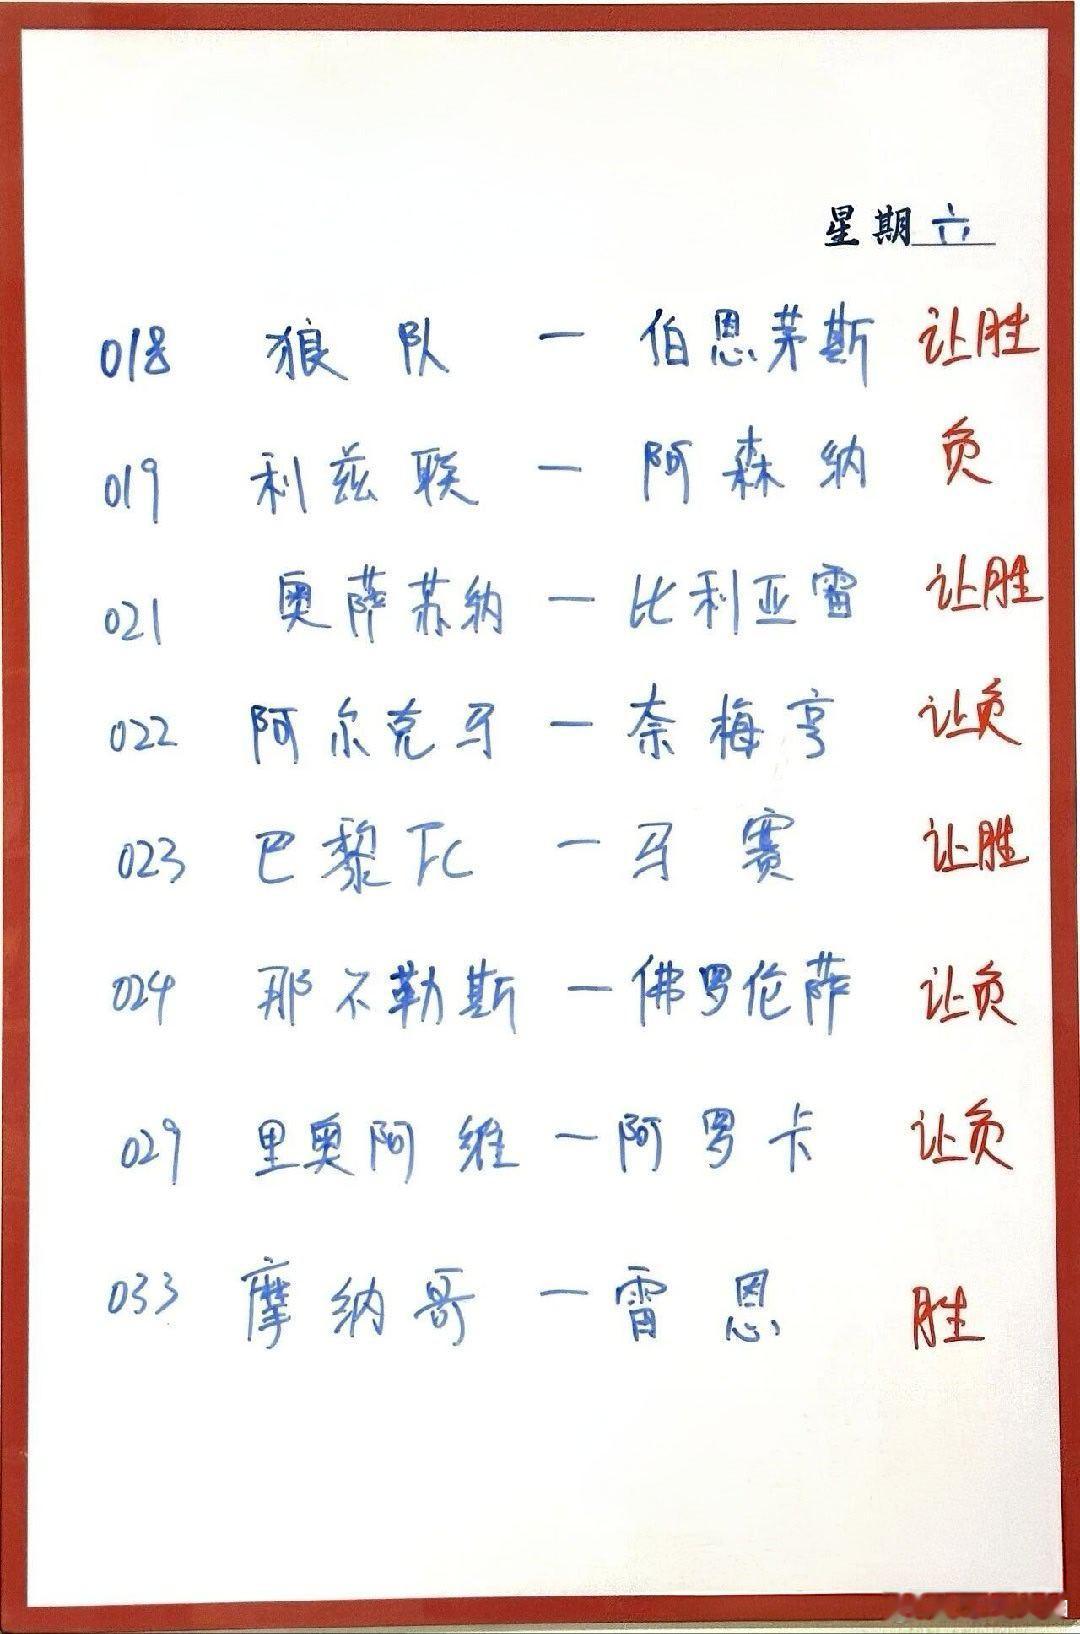 星期六
018 狼队 — 伯恩茅斯 让胜
019 利兹联 — 阿森纳 负
021 奥萨苏纳 — 比利亚雷 让胜
022 阿尔克马 — 奈梅亨 让负
023 巴黎FC — 马赛 让胜
024 那不勒斯 — 佛罗伦萨 让负
029 里奥阿维 — 阿罗卡 让负
033 摩纳哥 — 雷恩 胜